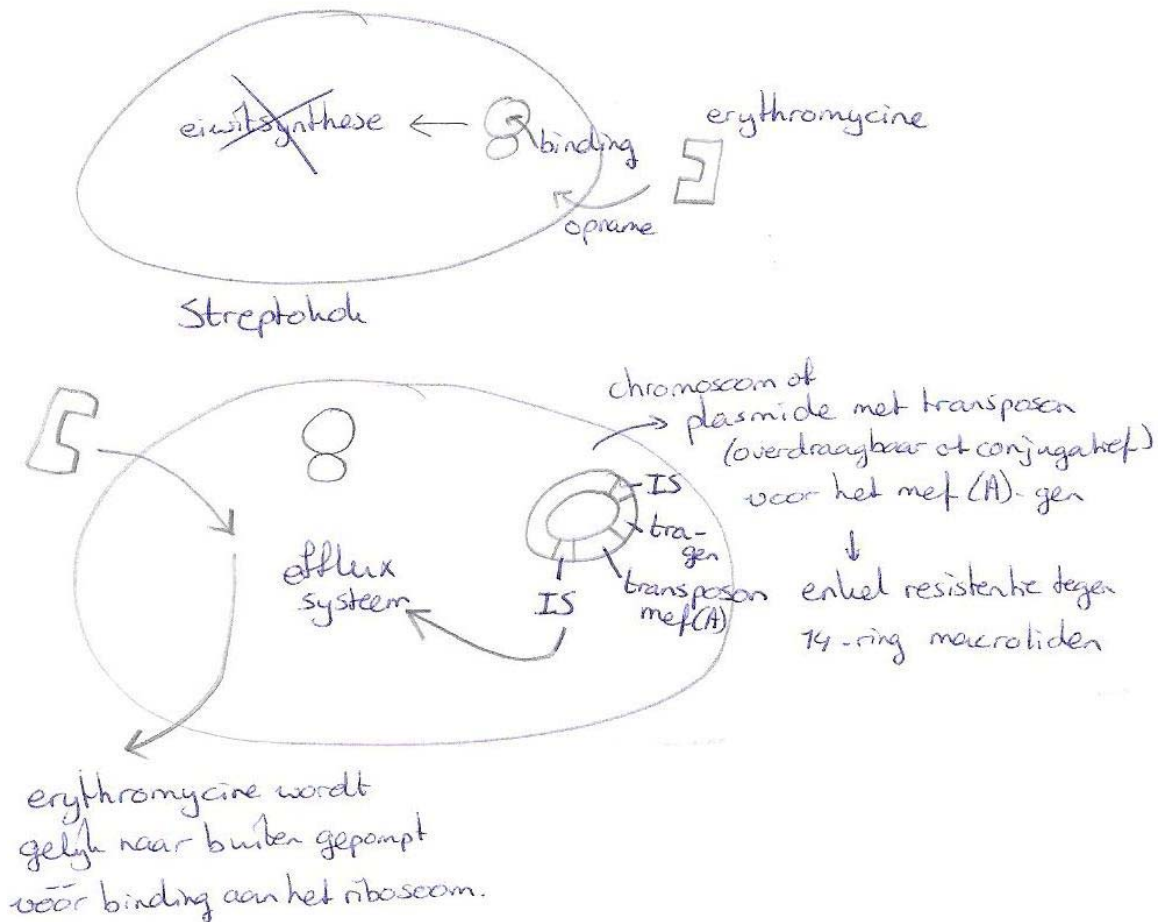 eiwitsynthese
binding
erythromycine
opname
Streptokok
chromosoom of
plasmide met transposon
(overdraagbaar of conjugatief)
voor het mef(A)-gen
enkel resistentie tegen
14-ring macroliden
IS
tra-
gen
transposon
mef(A)
IS
efflux
systeem
erythromycine wordt
gelijk naar buiten gepompt
vóór binding aan het ribosoom.